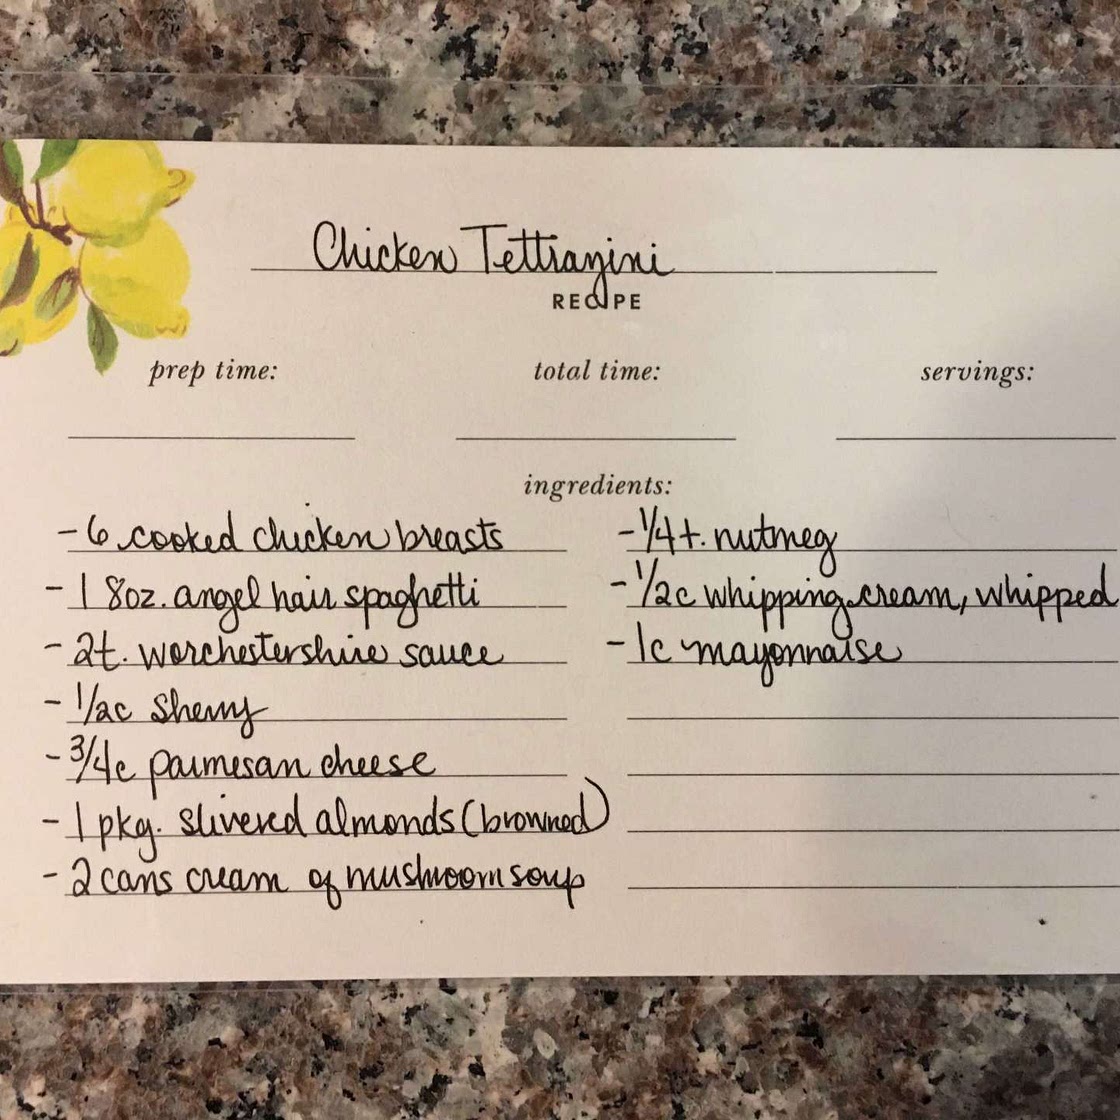 Chicken Tettrazini
RECIPE
prep time:
total time:
servings:
ingredients:
- 6 cooked chicken breasts
- 1 8oz. angel hair spaghetti
- 2t. worchestershire sauce
- 1/2c Sherry
- 3/4c parmesan cheese
- 1 pkg. slivered almonds (browned)
- 2 cans cream of mushroom soup
- 1/4 t. nutmeg
- 1/2c whipping cream, whipped
- 1c mayonnaise